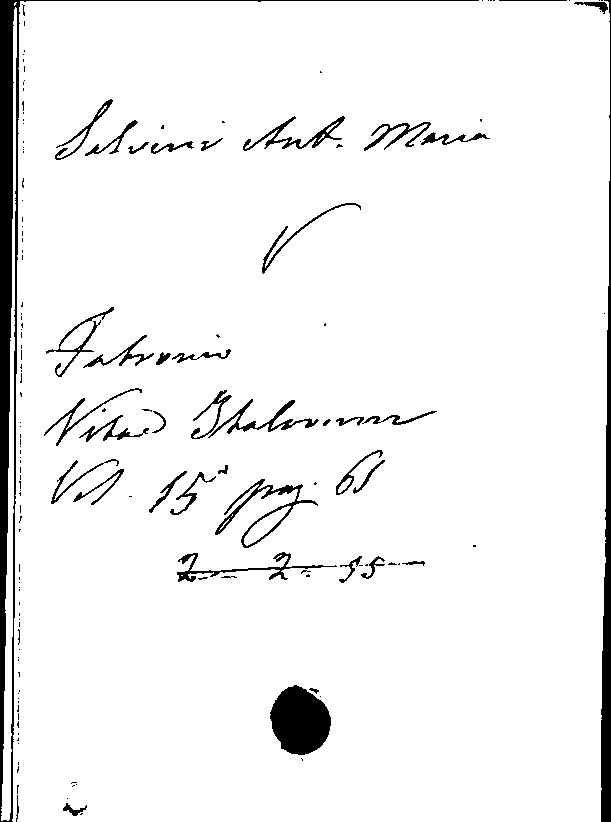 Salvini Ant. Maria
V
Fabronio
Vitae Italorum
Vol. 15° pag. 61
2 - 2 - 55